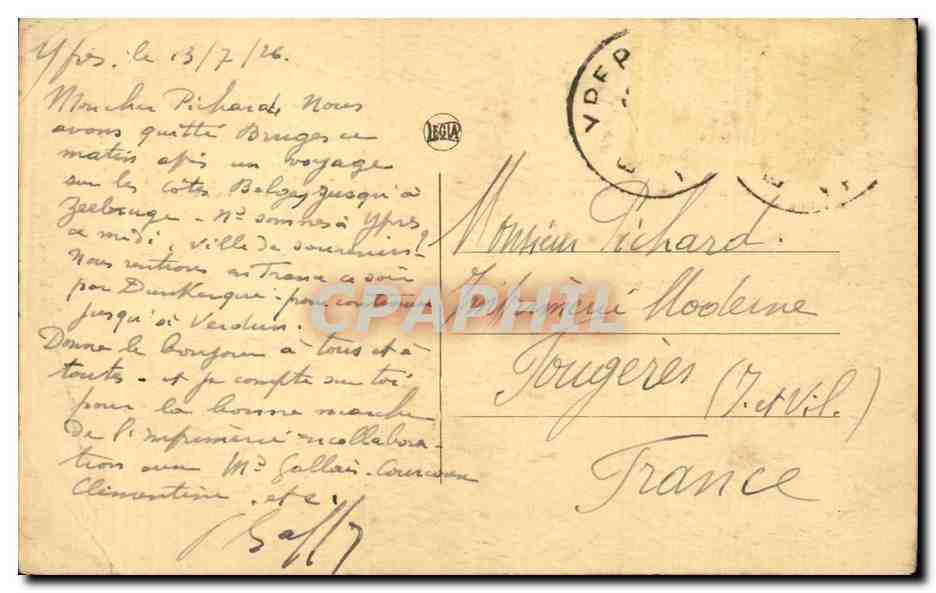 Ypres, le 13/7/26.
Mon cher Pichard, Nous
avons quitté Bruges ce
matin après un voyage
sur les côtes Belges jusqu'à
Zeebruge - Ns sommes à Ypres
à midi, ville de souvenirs!
Nous rentrons en France ce soir
par Dunkerque - pour continuer
jusqu'à Verdun.
Donne le bonjour à tous et à
toutes - et je compte sur toi
pour la bonne marche
de l'imprimerie en collabora-
tion avec Mr Gallais
Clémentine, etc.
LEGIA
YPER
Monsieur Pichard.
Imprimerie Moderne
Fougères
(I. et Vil.)
France
CPAPHIL